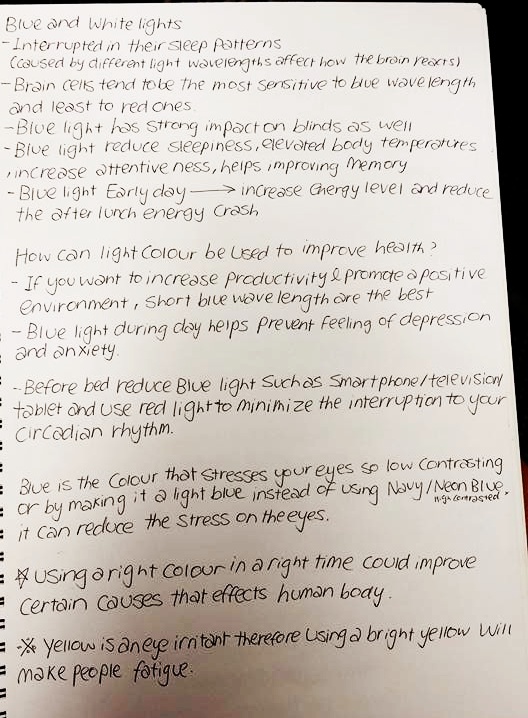 Blue and White lights
- Interrupted in their sleep patterns
(caused by different light wavelengths affect how the brain reacts)
- Brain cells tend to be the most sensitive to blue wavelength
and least to red ones.
- Blue light has strong impact on blinds as well
- Blue light reduce sleepiness, elevated body temperatures
, increase attentiveness, helps improving memory
- Blue light Early day → increase energy level and reduce
the after lunch energy crash
How can light colour be used to improve health?
- If you want to increase productivity & promote a positive
environment, short blue wavelength are the best
- Blue light during day helps prevent feeling of depression
and anxiety.
- Before bed reduce Blue light such as smartphone/television/
tablet and use red light to minimize the interruption to your
circadian rhythm.
Blue is the colour that stresses your eyes so low contrasting
or by making it a light blue instead of using Navy/Neon Blue,
high contrasted
it can reduce the stress on the eyes.
☆ Using a right colour in a right time could improve
certain causes that effects human body.
-※ Yellow is an eye irritant therefore using a bright yellow will
make people fatigue.